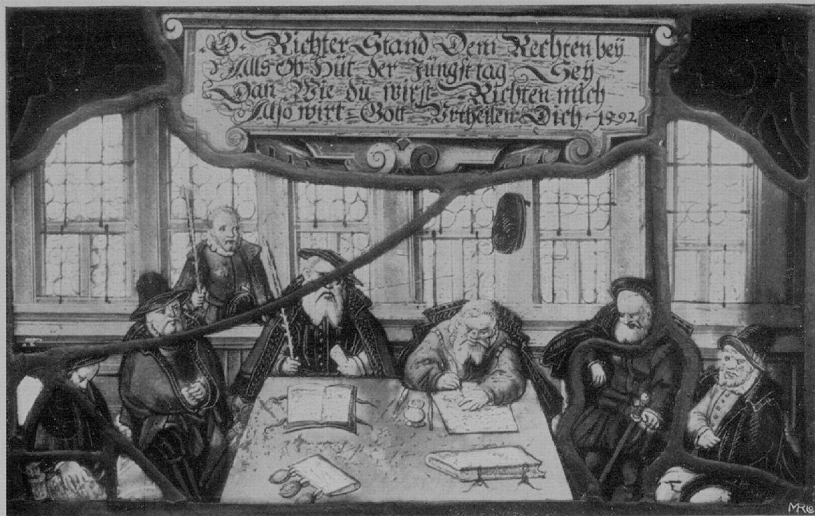 O Richter Stand Dem Rechten bey
Alls Ob Hüt der Jüngst tag Sey
Dan Wie du wirst Richten mich
Also wirt Gott Vrtheilen Dich 1592